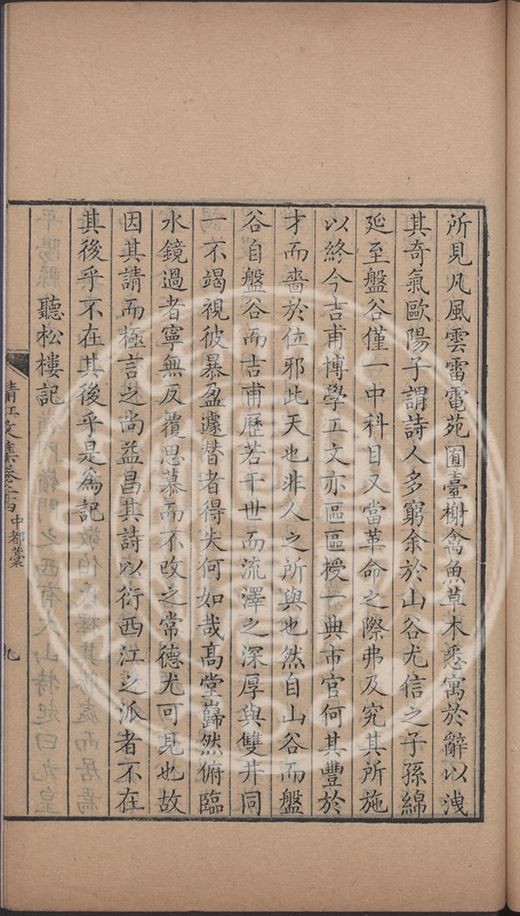 所見凡風雲雷電苑囿臺榭禽魚草木悉寓於辭以洩
其奇氣歐陽子謂詩人多窮余於山谷尤信之子孫綿
延至盤谷僅一中科目又當革命之際弗及究其所施
以終今吉甫博學工文亦區區授一典市官何其豐於
才而嗇於位邪此天也非人之所與也然自山谷而盤
谷自盤谷而吉甫歷若干世而流澤之深厚與雙井同
一不竭視彼暴盈遽朁者得失何如哉髙堂巋然俯臨
水鏡過者寧無反覆思慕而不改之常德尤可見也故
因其請而極言之尚益昌其詩以衍西江之派者不在
其後乎不在其後乎是爲記
聽松樓記
清江文集卷 中都藁
九